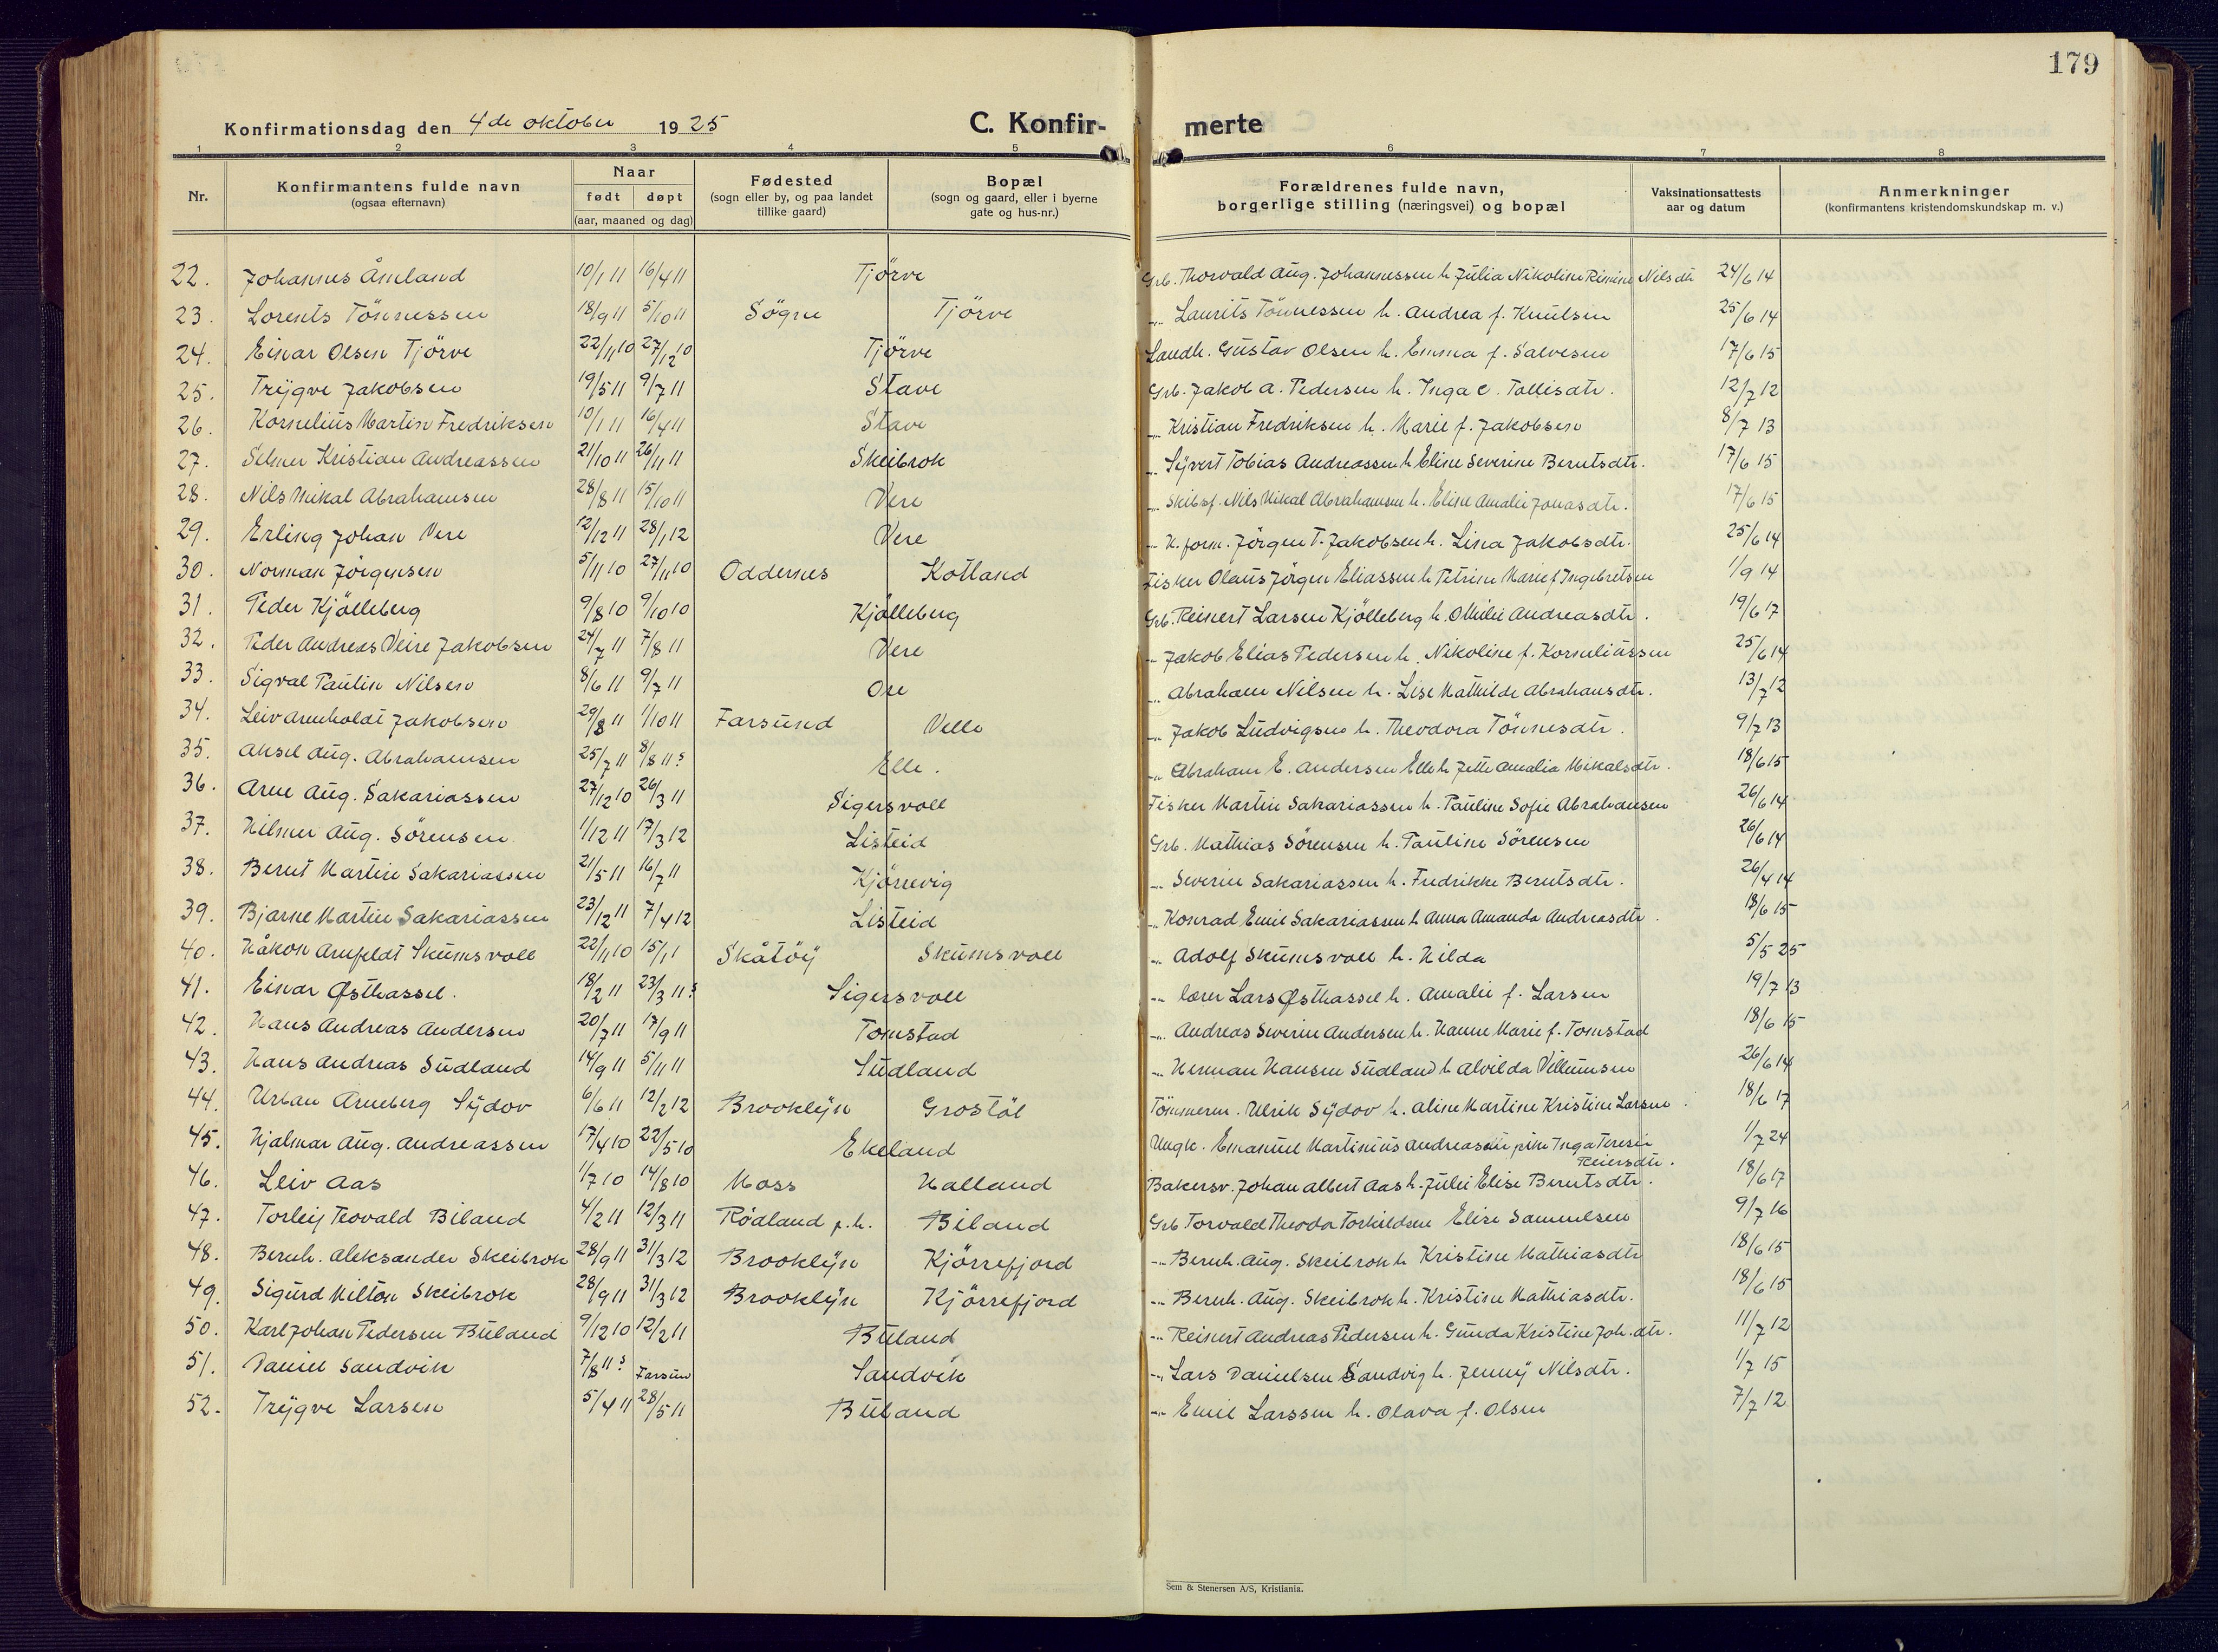 179
Konfirmationsdag den 4de oktober 1925 C. Konfir- merte
1 2 3 4 5 6 7 8
Nr. Konfirmantens fulde navn (ogsaa efternavn) Naar født døpt (aar, maaned og dag) Fødested (sogn eller by, og paa landet tillike gaard) Bopæl (sogn og gaard, eller i byerne gate og hus-nr.) Forældrenes fulde navn, borgerlige stilling (næringsvei) og bopæl Vaksinationsattests aar og datum Anmerkninger (konfirmantens kristendomskundskap m. v.)
22. Johannes Åmland 10/1 11 16/4 11 Tjörve Grb. Thorvald Aug. Johannessen h. Julia Nikoline Nilsdtr 24/6 14
23. Lorents Tönnessen 18/9 11 5/10 11 Sögne Tjörve -"- Laurits Tönnessen h. Andrea f. Knutsen 25/6 14
24. Einar Olsen Tjörve 22/11 10 27/12 10 Tjörve Landh. Gustav Olsen h. Emma f. Salvesen 17/6 15
25. Trygve Jakobsen 19/5 11 9/7 11 Stave Grb. Jakob A. Pedersen h. Inga C. Tollisdtr. 12/7 12
26. Kornelius Martin Fredriksen 10/1 11 16/4 11 Stave -"- Kristian Fredriksen h. Marie f. Jakobsen 8/7 13
27. Selmer Kristian Andreassen 21/10 11 26/11 11 Skeibrok -"- Syvert Tobias Andreassen h. Eline Severine Berntsdtr. 17/6 15
28. Nils Mikal Abrahamsen 28/8 11 15/10 11 Vere -"- Skibsf. Nils Mikal Abrahamsen h. Elise Amalie Jonasdtr. 17/6 15
29. Erling Johan Vere 12/12 11 28/1 12 Vere -"- H. form. Jörgen T. Jakobsen h. Lina Jakobsdtr. 25/6 14
30. Norman Jörgensen 5/11 10 27/11 10 Oddernes Kotland Fisker Olaus Jörgen Eliassen h. Petrine Marie f. Ingebretsen 1/9 14
31. Peder Kjölleberg 9/8 10 9/10 10 Kjölleberg Grb. Reinert Larsen Kjölleberg h. Othilie Andreasdtr. 19/6 17
32. Peder Andreas Veire Jakobsen 24/7 11 7/8 11 Vere -"- Jakob Elias Pedersen h. Nikoline f. Korneliussen 25/6 14
33. Sigval Paulin Nilsen 8/6 11 9/7 11 Ore -"- Abraham Nilsen h. Lise Mathilde Abrahamsdtr. 13/7 12
34. Leiv Arnholdt Jakobsen 29/8 11 1/10 11 Farsund Velle -"- Jakob Ludvigsen h. Theodora Tönnesdtr. 9/7 13
35. Aksel Aug. Abrahamsen 25/7 11 8/8 11? Elle. -"- Abraham E. Andersen Elle h. Jette Amalia Mikalsdtr. 18/6 15
36. Arne Aug. Sakariassen 27/12 10 26/3 11 Sigersvoll Fisker Martin Sakariassen h. Pauline Sofie Abrahamsen 26/6 14
37. Hilmer Aug. Sörensen 1/12 11 17/3 12 Listeid Grb. Mathias Sörensen h. Pauline Sörensen 26/6 14
38. Bernt Martin Sakariassen 21/5 11 16/7 11 Kjörrevig -"- Severin Sakariassen h. Fredrikke Berntsdtr. 26/4 14
39. Bjarne Martin Sakariassen 23/12 11 7/4 12 Listeid -"- Konrad Emil Sakariassen h. Anna Amanda Andreasdtr. 18/6 15
40. Håkon Arnfeldt Skumsvoll 22/11 10 15/1 1 Skåtöy Skumsvoll -"- Adolf Skumsvoll h. Hilda 5/5 25
41. Einar Østhassel. 18/2 11 23/3 11? Sigersvoll -"- lærer Lars Østhassel h. Amalie f. Larsen 19/7 13
42. Hans Andreas Andersen 20/7 11 17/9 11 Tomstad -"- Andreas Severin Andersen h. Hanne Marie f. Tomstad 18/6 15
43. Hans Andreas Sudland 14/9 11 5/11 11 Sudland -"- Herman Hansen Sudland h. Alvilda Villumsen 26/6 14
44. Urban Arneberg Sydov 6/6 11 12/2 12 Brooklyn Grostöl Tömmerm. Ulrik Sydov h. Aline Martine Kristine Larsen 18/6 17
45. Hjalmar Aug. Andreassen 17/4 10 22/5 10 Ekeland Ungk. Emanuel Martinius Andreassen pike Inga Teresie Reiersdtr. 1/7 24
46. Leiv Aas 1/7 10 14/8 10 Moss Halland Bakersv. Johan Albert Aas h. Julie Elise Berntsdtr. 18/6 17
47. Torleif Teovald Biland 4/2 11 12/3 11 Rödland p.h. Biland Grb Torvald Theodor Torkildsen Elise Samuelsen 9/7 16
48. Bernh. Aleksander Skeibrok 28/9 11 31/3 12 Brooklyn Kjörrefjord -"- Bernh. Aug. Skeibrok h. Kristine Mathiasdtr 18/6 15
49. Sigurd Milton Skeibrok 28/9 11 31/3 12 Brooklyn Kjörrefjord -"- Bernh. Aug. Skeibrok h. Kristine Mathiasdtr. 18/6 15
50. Karl Johan Pedersen Buland 9/12 10 12/2 11 Buland -"- Reinert Andreas Pedersen h. Gunda Kristine Joh.dtr. 11/7 12
51. Daniel Sandvik 7/8 11? Farsun Sandvik -"- Lars Danielsen Sandvig h. Jenny Nilsdtr. 1/7 15
52. Trygve Larsen 5/4 11 28/5 11 Buland -"- Emil Larssen h. Olava f. Olsen 7/7 12
Sem & Stenersen A/S, Kristiania.